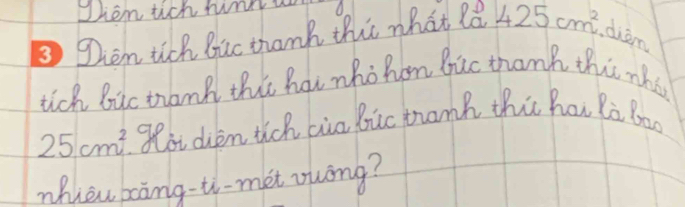 Diện tích hình
3 Diện tích bức tranh thứ nhất là 425 cm², diện
tích bức tranh thứ hai nhỏ hơn bức tranh thứ nhất
25 cm². Hỏi diện tích của bức tranh thứ hai là bao
nhiêu xăng-ti-mét vuông?